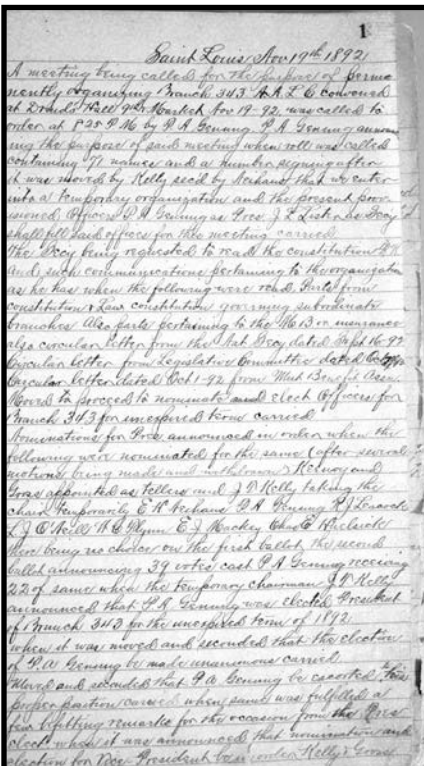 1
Saint Louis Nov 19th 1892
A meeting being called for the purpose of perma
nently organizing Branch 343 N.A.L.C convened
at Druids Hall 9th & Market Nov 19-92 was called to
order at 8 25 P M by P.A. Genung. P.A Genung announ
cing the purpose of said meeting when roll was called
containing 71 names and a number signing after
it was moved by Kelly sec'd by Neihaus that we enter
into a temporary organization and the present prov
isioned Officers P.A Genung as Pres J. E. as Secy
shall fill said offices for this meeting carried
The Secy being requested to read the constitution
and such communications pertaining to the organization
as he has when the following were read. Parts from
constitution & Laws constitution governing subordinate
branches Also parts pertaining to the M B on insurance
also circular letter from the Nat. Secy dated Sept 16-92
Circular letter from Legislative Committee dated
Circular letter dated Oct 1-92 from Mut Benefit Assn.
Moved to proceed to nominate and elect Officers for
Branch 343 for unexpired term carried
Nominations for Pres announced in order when the
following were nominated for the same (after several
motions being made and withdrawn) and
Goras appointed as tellers and J T Kelly taking the
chair temporarily E W Neihaus P.A Genung R J
L J O'Neill W C Flynn E J Mackey Chas E
there being no choice on the first ballot, the second
ballot announcing 39 votes cast P A Genung receiving
22 of same when the temporary chairman J T Kelly
announced that P.A. Genung was elected President
of Branch 343 for the unexpired term of 1892
when it was moved and seconded that the election
of P.A Genung be made unanimous carried
Moved and seconded that P A Genung be escorted to his
proper position carried when same was fulfilled a
few befitting remarks for the occasion from the Pres
elect when it was announced that nomination and
election for Vice President be in order Kelly & Goras